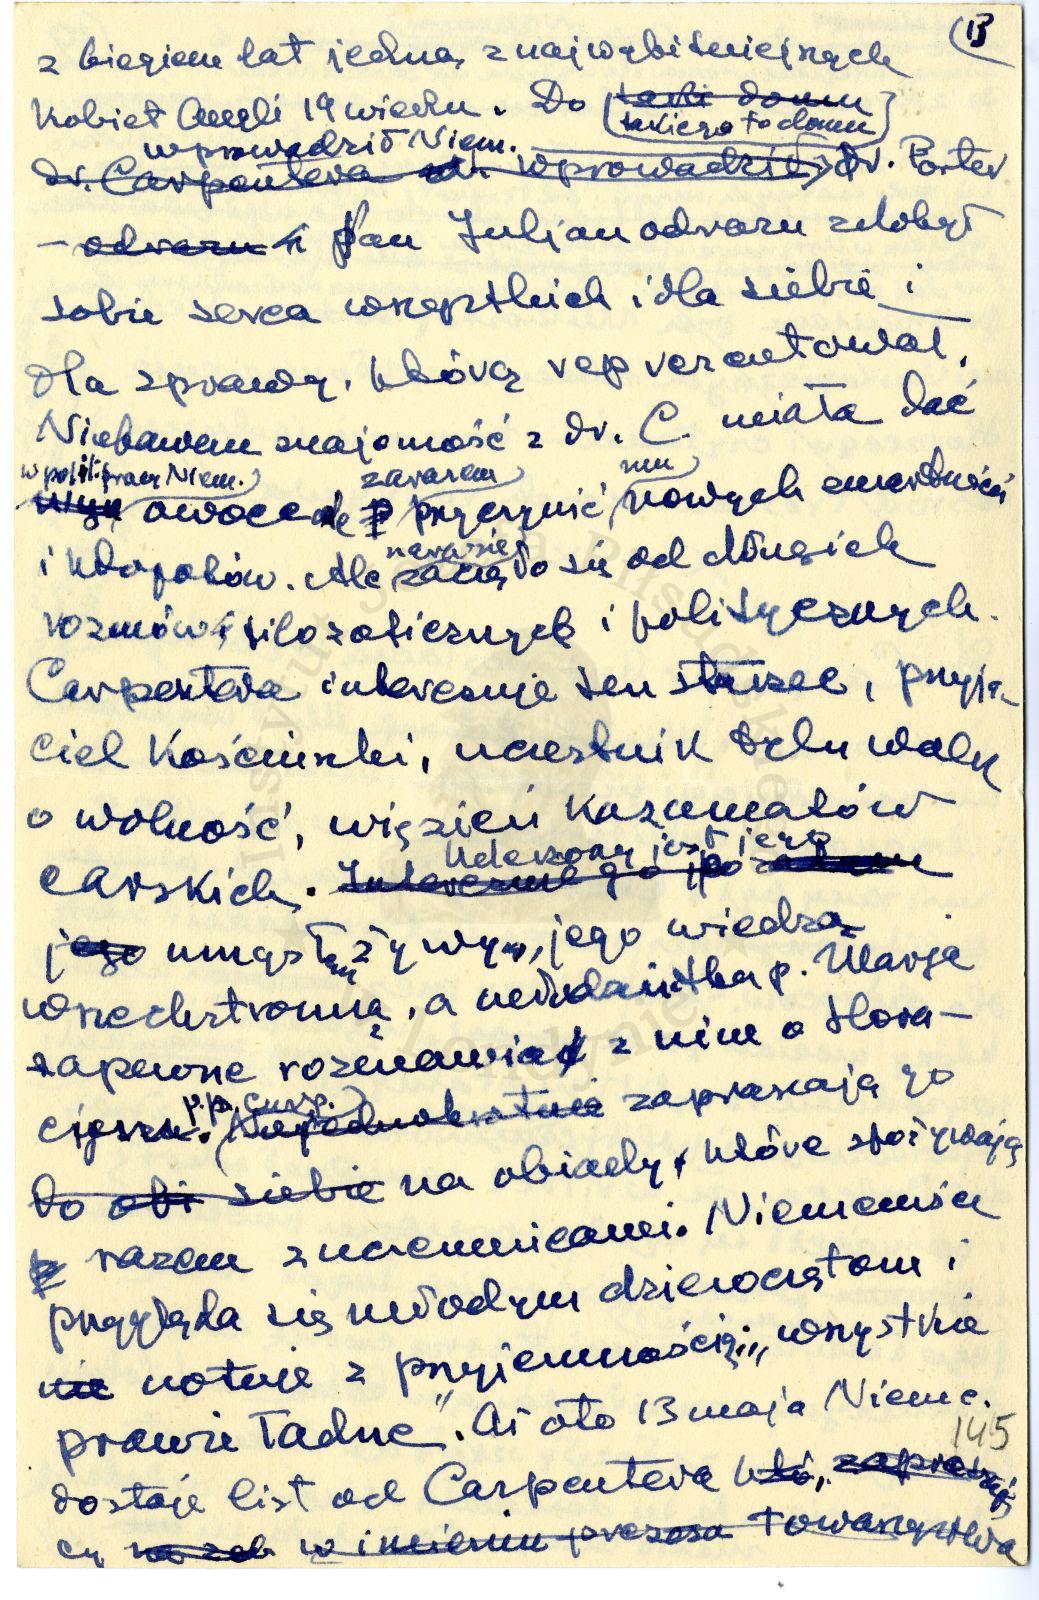 13
z biegiem lat jedną z najwybitniejszych
kobiet Anglii 19 wieku. Do taki domu
takiego to domu
wprowadził Niem.
dr. Carpentera wprowadził dr. Porter
– odrazu i Pan Juljan odrazu zdobył
sobie serca wszystkich i dla siebie i
dla sprawy, którą reprezentował.
Niebawem znajomość z dr. C. miała dać
w polit. pracy Niem. zarazem mu
owoce ale przyczynić nowych zmartwień
i kłopotów. Ale narazie
zaczęło się od długich
rozmów filozoficznych i politycznych.
Carpentera interesuje ten starzec, przyja-
ciel Kościuszki, uczestnik tylu walk
o wolność, więzień kazamatów
Uderzony jest jego
carskich. Interesuje go jego
jego umysłem żywym, jego wiedzą
wszechstronną, a młodziutka p. Marja
zapewne rozmawia z nim o Hora-
p.p. Carp.
cjuszu. Niejednokrotnie zapraszają go
do obi siebie na obiady, które spożywają
razem z uczennicami. Niemcewicz
przygląda się młodym dziewczętom i
nie notuje z przyjemnością „wszystkie
prawie ładne". Aż oto 13 maja Niemc.
145
dostaje list od Carpentera
cy w imieniu prezesa Towarzystwa